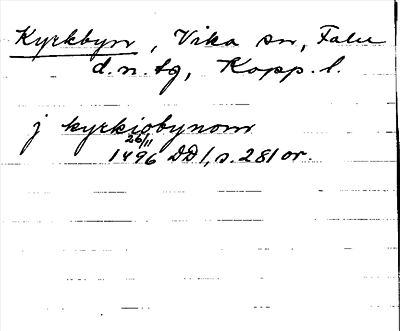 Kyrkbyn, Vika sn, Falu
d. n. tg, Kopp. l.
j kyrkiobynom
26/11
1496 DD 1, s. 281 or.